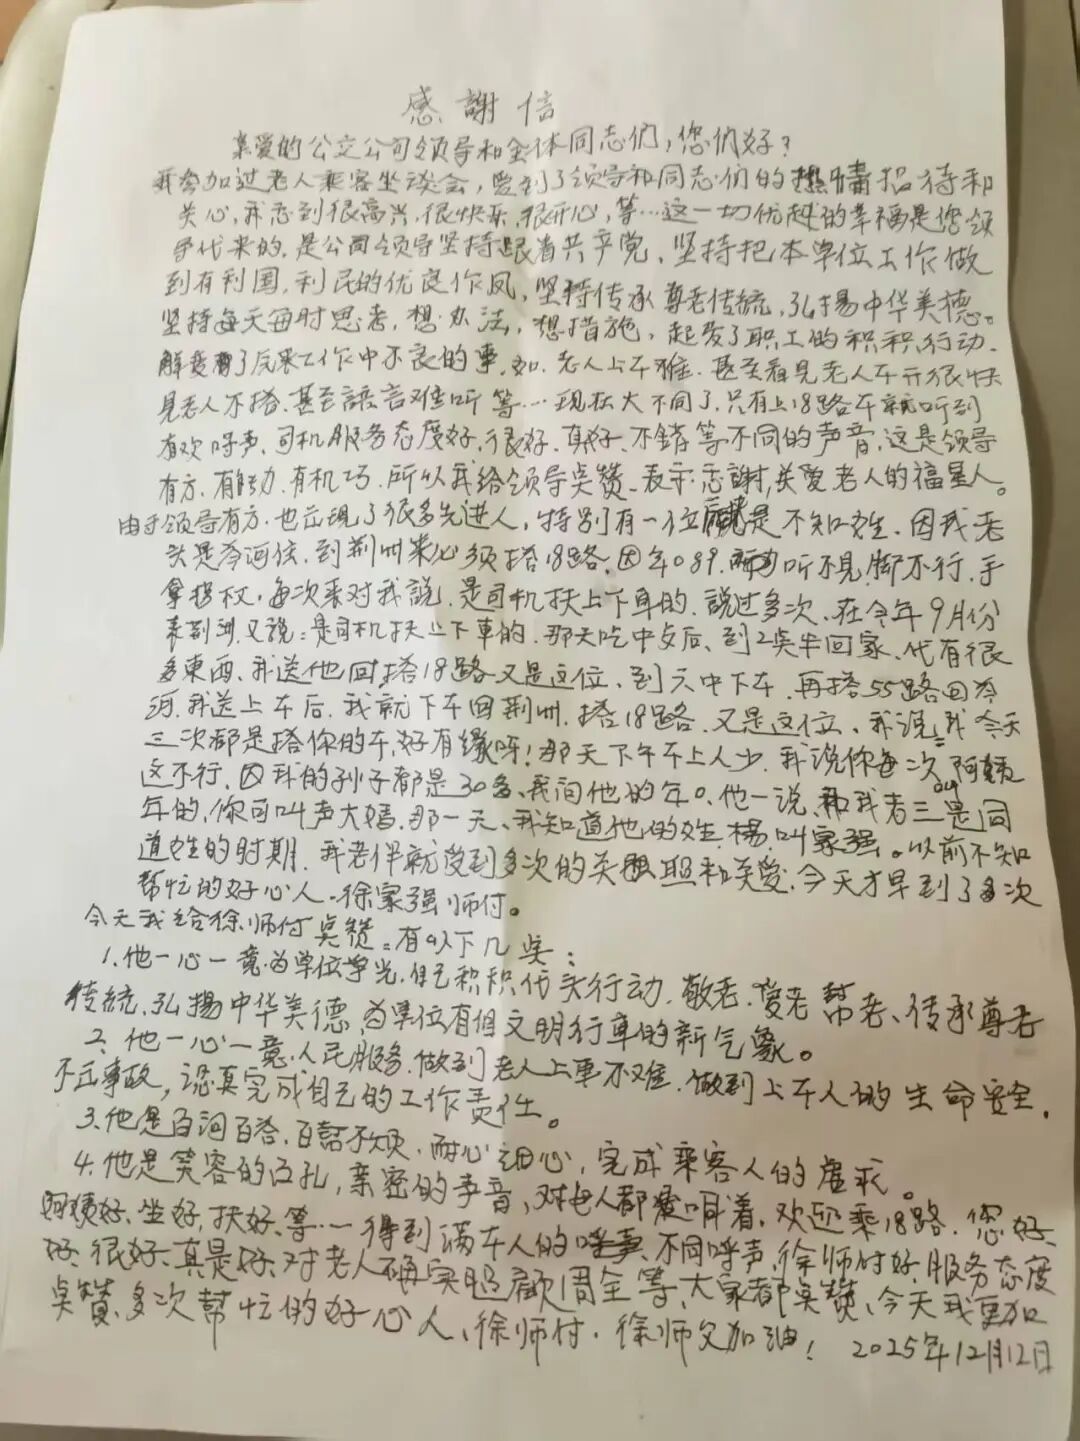 感謝信
亲爱的公交公司领导和全体同志们，您们好？
我参加过老人乘客坐谈会，受到了领导和同志们的热情招待和
关心，我感到很高兴，很快乐，很开心，等…这一切优越的幸福是您领
导代来的，是公司领导坚持跟着共产党，坚持把本单位工作做
到有利国，利民的优良作风，坚持传承尊老传统，弘揚中华美德。
坚持每天每时思考，想办法，想措施，起发了职工的积积行动、
解变了反来工作中不良的事，如、老人上车难，甚至看見老人车开很快
見老人不搭、甚至語言难听等…现在大不同了，只有上18路车就听到
有欢呼声、司机服务态度好、很好、真好、不錯等不同的声音，这是领导
有方、有能力、有机巧、所以我给领导奌赞、表示感謝，关爱老人的福星人。
由于领导有方，也出现了很多先进人，特别有一位就是不知姓、因我老
头是岑河住，到荆州来必须搭18路、因年089，听不見，脚不行、手
拿拐杖，每次来对我説，是司机扶上下車的，説过多次、在今年9月份
来荆州，又说：是司机扶上下車的，那天吃中支后、到2奌半回家、代有很
多東西，我送他回搭18路又是这位、到六中下车，再搭55路回岑
河，我送上车后，我就下车回荆州，搭18路、又是这位、我说：我今天
三次都是搭你的车，好有缘呀！那天下午车上人少，我说你每次叫阿姨
这不行，因我的孙子都是30多、我问他的年。他一说，和我老三是同
年的，你可叫声大媽，那一天、我知道他的姓，楊，叫家强。以前不知
道姓的时期，我老伴就受到多次的关照和关爱，今天才早到了多次
帮忙的好心人、徐家强师付。
今天我给徐师付奌赞：有以下几奌：
1.他一心一意为单位争光，自己积积代头行动，敬老、爱老帮老、传承尊老
传統，弘揚中华美德，为单位有個文明行車的新气象。
2、他一心一意人民服务，做到老人上車不难，做到上车人的生命安全，
不出事故，認真完成自己的工作责任。
3.他是百问百答，百話不烦，耐心细心，完成乘客人的虚求。
4.他是笑容的面孔，亲密的声音，对老人都爱叫着，欢迎乘18路，您好、
阿姨好、坐好，扶好、等…得到满车人的不同呼声，徐师付好，服务态度
好、很好、真是好、对老人确实照顧周全等、大家都奌赞、今天我更加
奌赞、多次幫忙的好心人、徐师付，徐师父加油！ 2025年12月12日